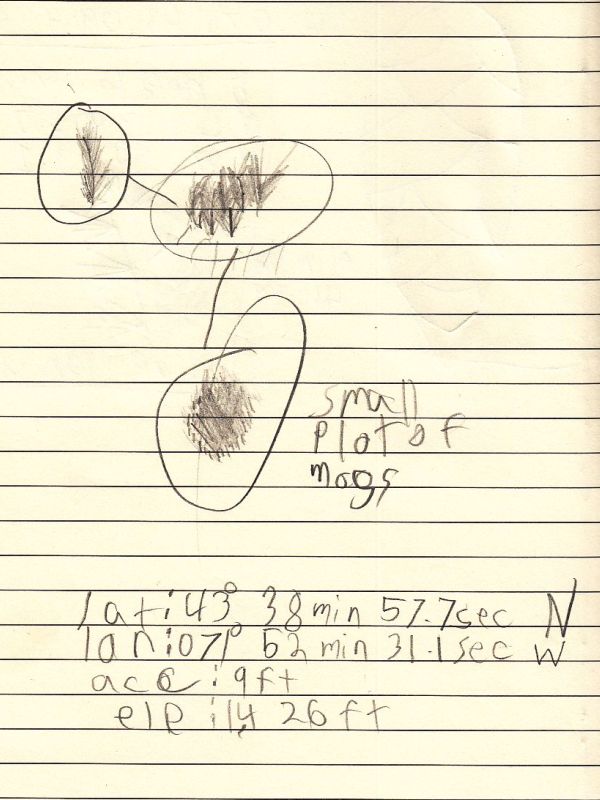 small
plot of
mogs
lati: 43° 38 min 57.7sec N
lon: 071° 52 min 31.1sec W
acc: 9ft
ele: 1,426 ft